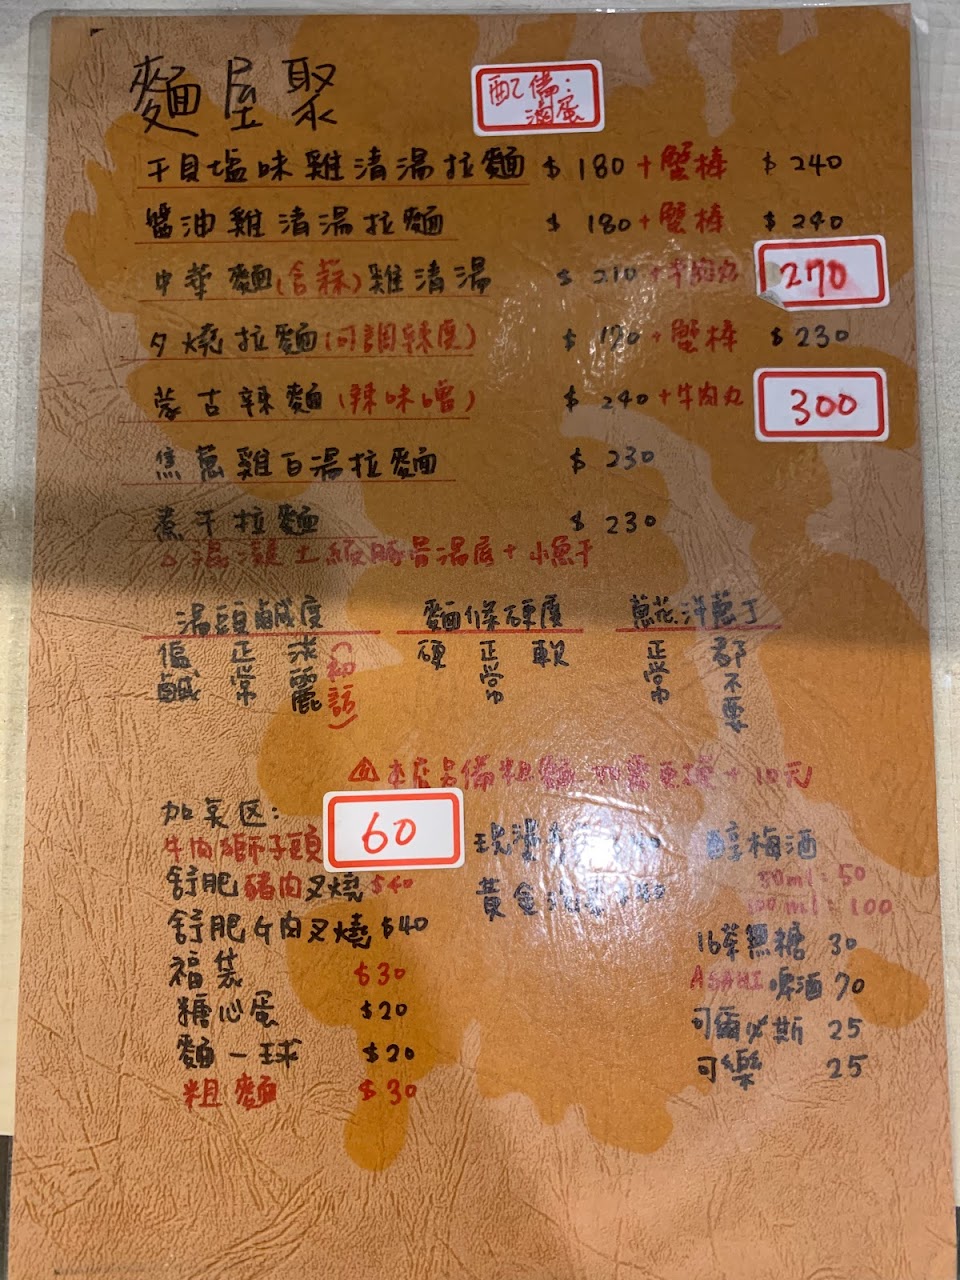 麵屋聚
配備:
滷蛋
干貝塩味雞清湯拉麵 $180 +蟹棒 $240
醬油雞清湯拉麵 $180 +蟹棒 $240
中華麵(含蒜)雞清湯 $210 +牛肉丸 270
夕燒拉麵(可調辣度) $170 +蟹棒 $230
蒙古辣麵(辣味噌) $240 +牛肉丸 300
焦蔥雞白湯拉麵 $230
煮干拉麵 $230
豚骨湯底+小魚干
湯頭鹹度 麵條硬度 蔥花洋蔥丁
偏鹹 正常 淡麗(初訪) 硬 正常 軟 正常 都不要
本店 備粗麵 如需更換+10元
加菜区:
牛肉獅子頭 60
舒肥豬肉叉燒 $40
舒肥牛肉叉燒 $40
福袋 $30
糖心蛋 $20
麵一球 $20
粗麵 $30
黃金
醇梅酒
50ml:50
100ml:100
16茶無糖 30
ASAHI啤酒 70
可爾必斯 25
可樂 25